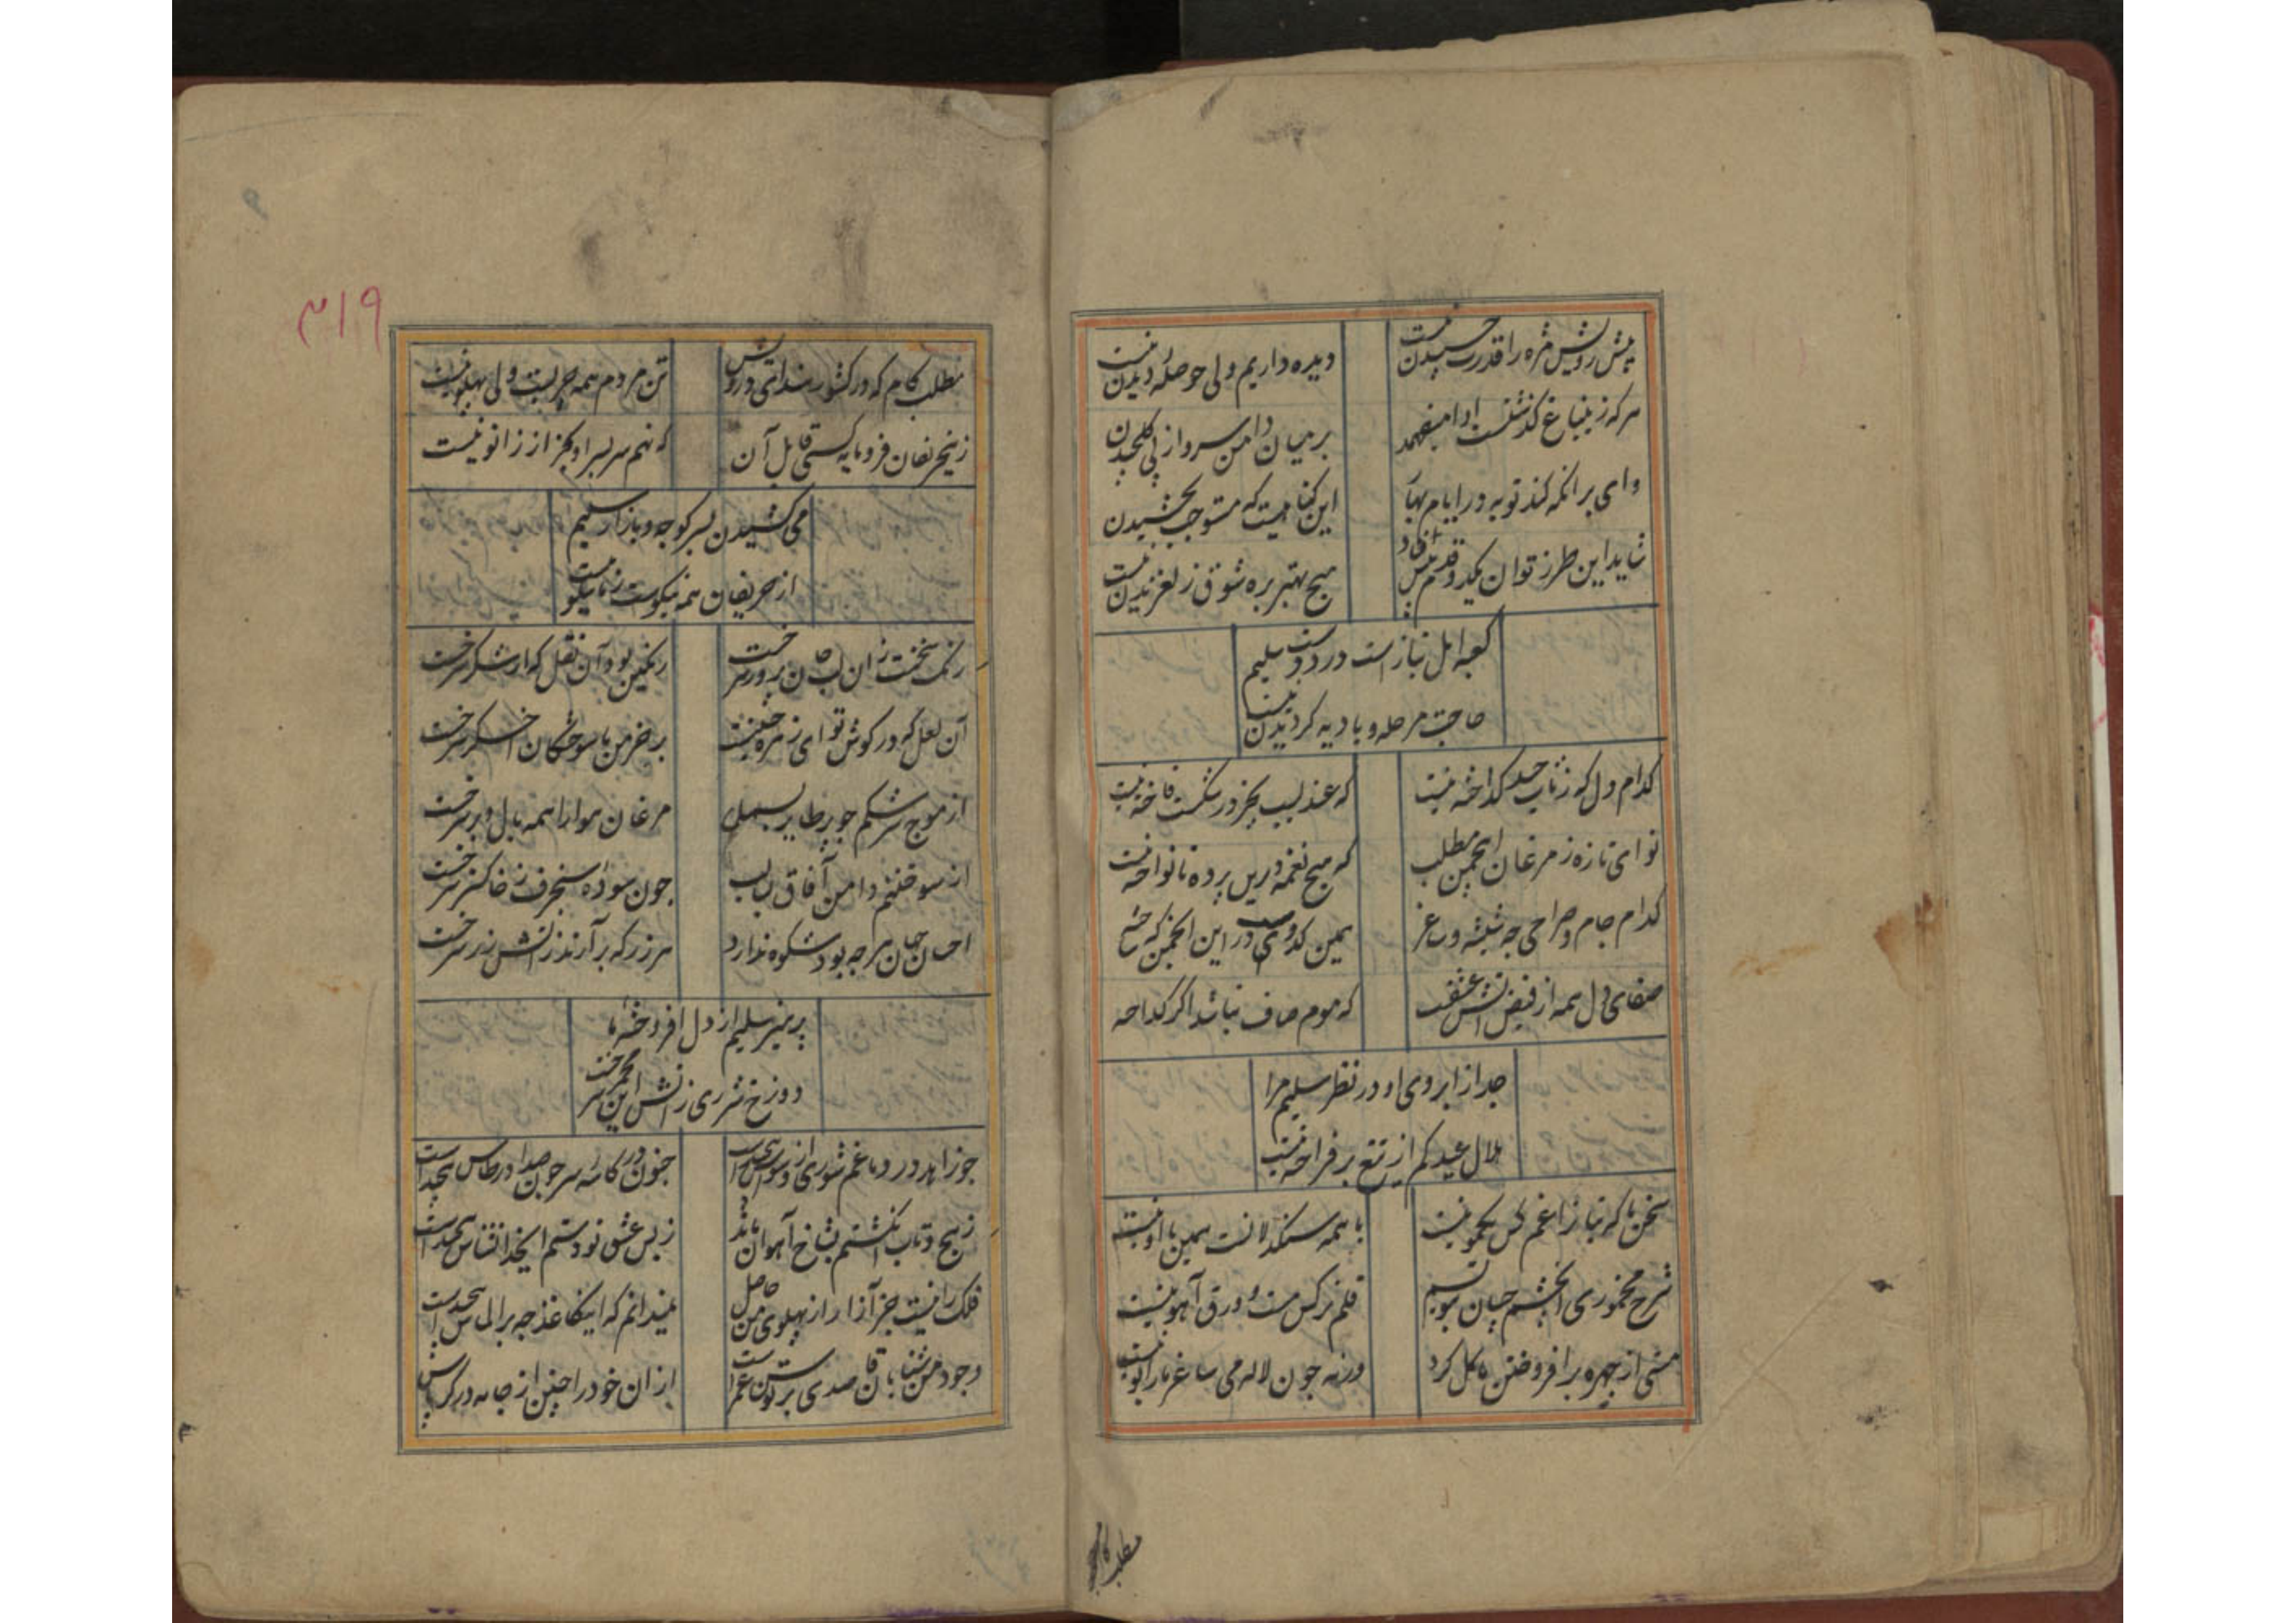 پیش رویش مژه را قدرت جنبیدن نیست
دیده داریم ولی حوصله دیدن نیست
هر که زینباغ گذشتست ادا میفهمد
بر میان دامن سرو از پی گلچیدن
وای بر انکه کند توبه در ایام بهار
این گناهیست که مستوجب بخشیدن
شاید این طرز توان یکدو قدم پیش افتاد
هیچ بهتر بره شوق ز لغزیدن نیست
کعبه اهل نیاز است در دوست سلیم
حاجت مرحله و بادیه گردیدن نیست
کدام دل که ز تاب حسد گداخته نیست
که عندلیب بجز در شکست فاخته نیست
نوای تازه ز مرغان این چمن مطلب
که هیچ نغمه درین پرده نانواخته نیست
کدام جام و صراحی چه شیشه و ساغر
همین کدوست درین انجمن که
صفای دل همه از فیض آتش عشقست
که موم صاف نباشد اگر گداخته
جدا از ابروی او در نظر سلیم مرا
هلال عید کم از تیغ بر فراخته نیست
سخن ما که نیازا غم کس یکمو نیست
با همه سنگدلانست همین با او نیست
شرح مخموری آنچشم چسان بنویسم
قلم نرگس مست و ورق آهو نیست
مستی از چهره برافروختن ما گل کرد
ورنه چون لاله می ساغر ما را بو نیست
مطلب کام
۳۱۹
مطلب کام که در کشور سودای درویش
تن مردم همه چربست ولی پهلو نیست
زینحریفان فرومایه کسی قابل آن
که نهم سر بسر او بجز از زانو نیست
می کشیدن بسر کوچه و بازار سلیم
از حریفان همه نیکوست ز ما نیکو نیست
رنگ سخنت زان لب جان پرور سرخست
رنگین بود آن نقل که از شکر سرخست
آن لعل که در گوش تو ای زهره جبینست
بر خرمن ما سوختگان اخگر سرخست
از موج سرشکم چو پر طایر بسمل
مرغان هوا را همه بال و پر سرخست
از سوختنم دامن آفاق لبالب
چون سوده شنجرف ز خاکستر سرخست
احسان جهان هر چه بود شکوه ندارد
هر زر که بر آرند ز آتش زر سرخست
پرهیز سلیم از دل افروخته ما
دوزخ شرری ز آتش این مجمر سرخست
چو زاهد در دماغم شورش از وسواس پیچیداست
جنون در کاسه سر چون صدا در طاس پیچیداست
ز پیچ و تاب انگشتم بشاخ آهوان ماند
ز بس عشق تو دستم
فلک را نیست جز آزار از پهلوی من حاصل
نمیدانم که اینکاغذ چه بر الماس پیچیداست
وجود من شتابان قاصدی بر توسن عمر است
از ان خود را چنین از جامه در کرباس